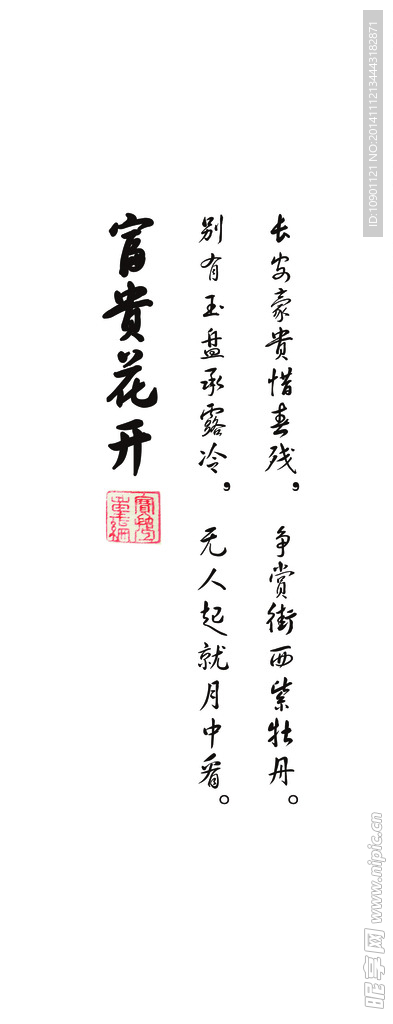 长安豪贵惜春残，争赏街西紫牡丹。
别有玉盘承露冷，无人起就月中看。
富贵花开
ID:10901121 NO:20141112134443182871
昵享网 www.nipic.cn